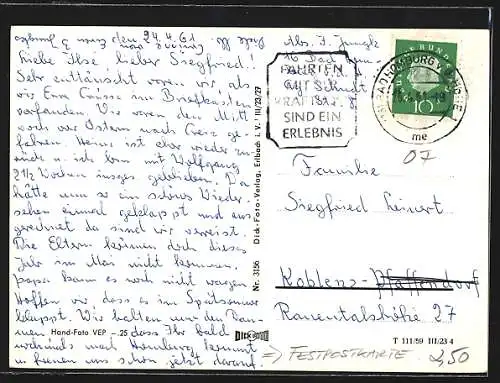 den 24.4.61
Liebe Ilse, lieber Siegfried!
Sehr enttäuscht waren wir, als
wir Eure Grüsse im Briefkasten
vorfanden. Wir waren den Mitt
woch vor Ostern nach Greiz ge-
fahren. Heinz ist eher wieder zu-
rück u. ich bin mit Wolfgang
2½ Wochen insges. geblieben. Da
hätte nun so ein schönes Wieder-
sehen einmal geklappt und aus-
gerechnet da sind wir verreist.
Die Eltern können doch dieses
Jahr im Mai nicht kommen.
Papa kann es noch nicht wagen.
Hoffen wir, dass es im Spätsommer
klappt. Wir halten nur den Dau-
men, dass Ihr bald
nochmals nach Homburg kommt
u. freuen uns schon jetzt darauf.
Hand-Foto VEP -.25
Nr. 3156 Dick-Foto-Verlag, Erlbach i. V. III/23/29
DICK
Abs. F. Jungk
16 Bad Hom-
KURIEN
AUF
SIND EIN
ERLEBNIS
BAD HOMBURG
me
10
07
Familie
Siegfried Leinert
Koblenz-Pfaffendorf
Rauentalshöhe 27
T 111/59 III/23 4
=> FESTPOSTKARTE 2,50